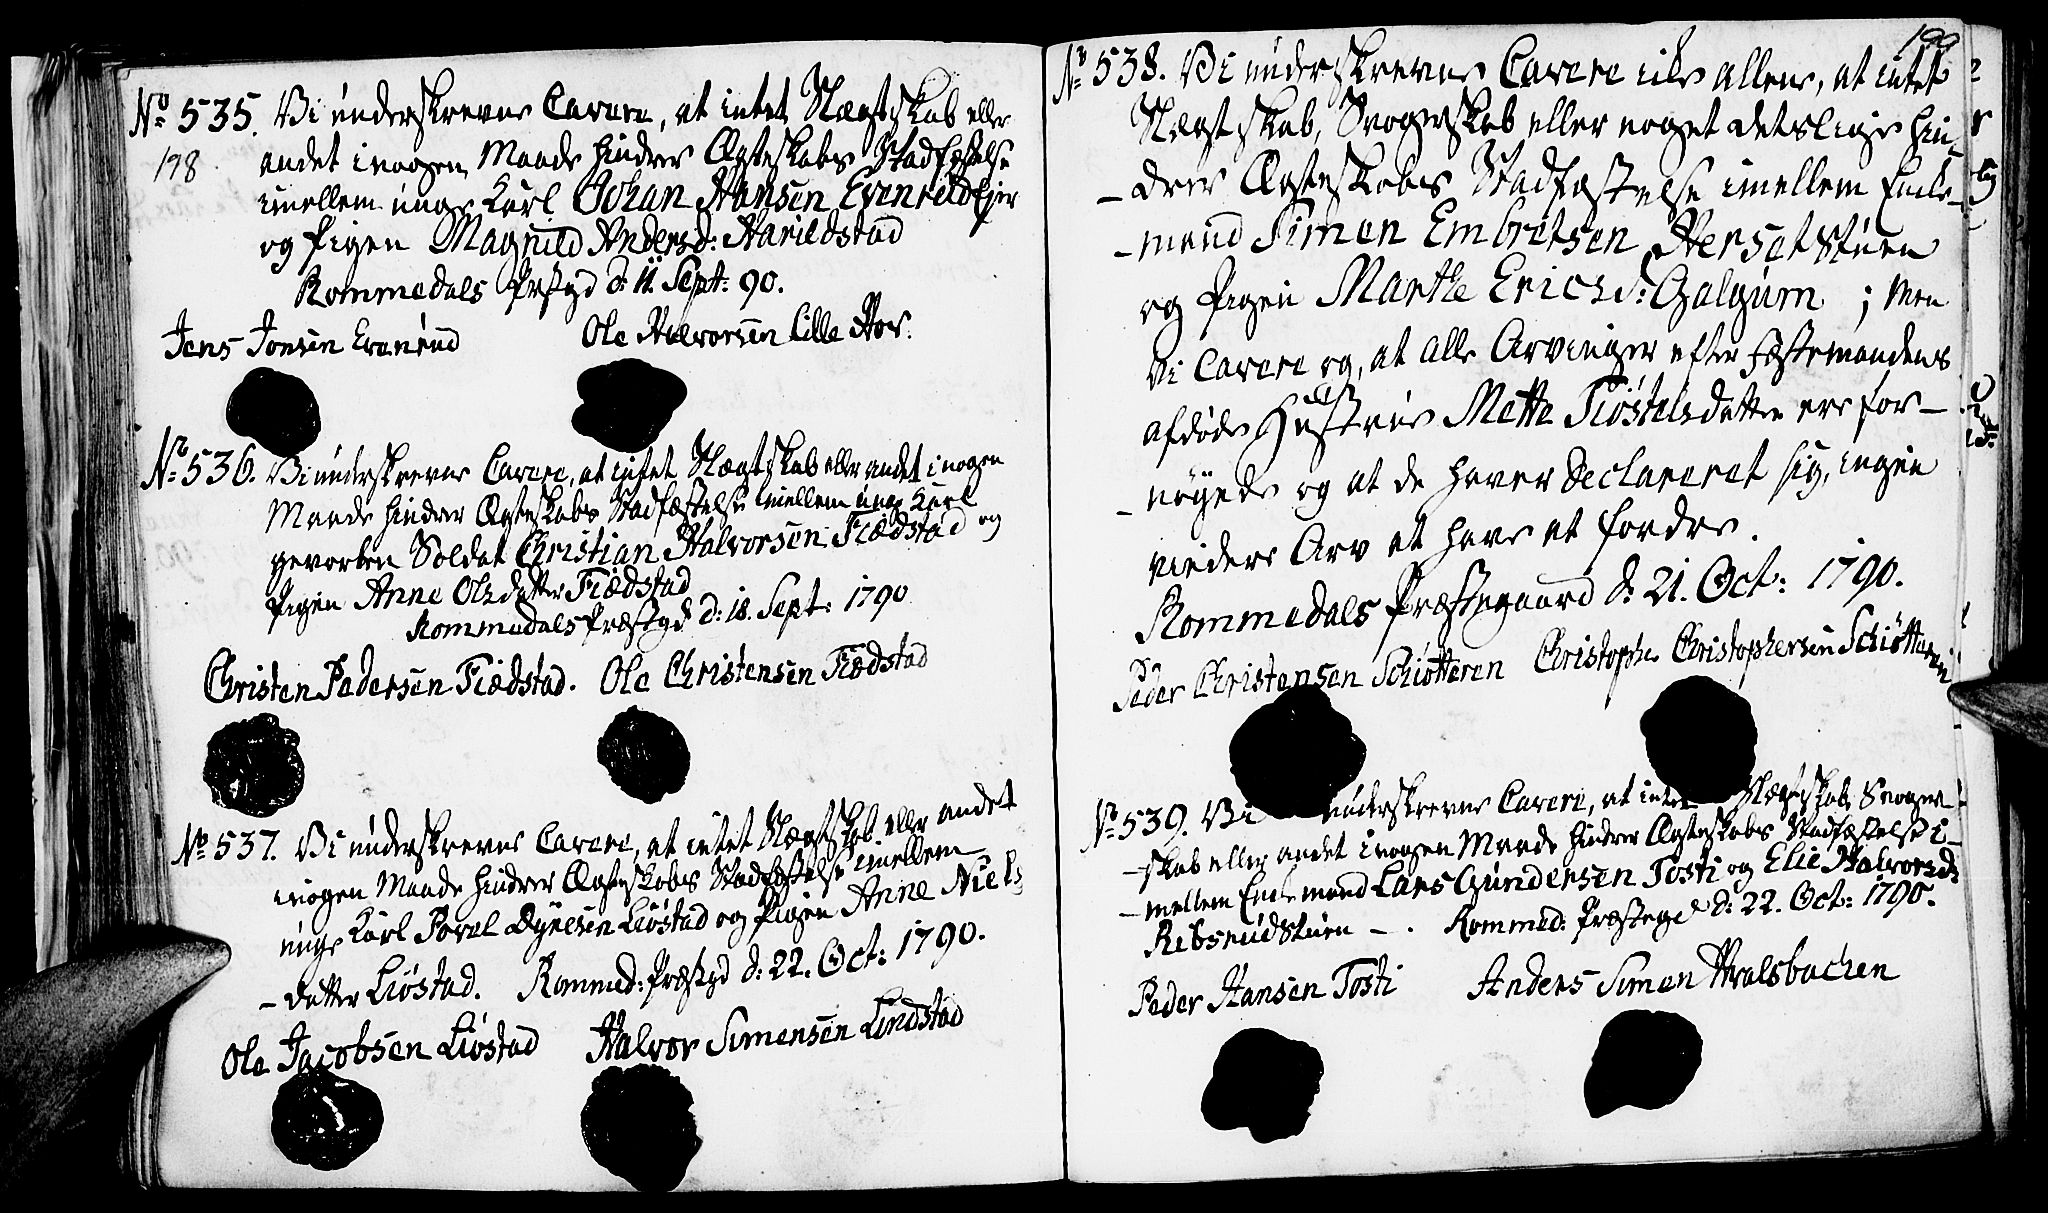 198
No 535. Vi underskrevne Cavere, at intet Slægtskab eller
andet i nogen Maade hindrer Ægteskabs Stadfæstelse
imellem unge Karl Johan Hansen
og Pigen Magnild Andersd: Harildstad
Rommedals Præstgd d: 11. Sept: 90.
Jens Jonsen Evenrud Ole Halvorsen Lille Hov.
No 536. Vi underskrevne Cavere, at intet Slægtskab eller andet i nogen
Maade hindrer Ægteskabs Stadfæstelse imellem unge Karl
gevorben Soldat Christian Halvorsen Fiædstad og
Pigen Anne Olsdatter Fiædstad
Rommedals Præstgd d: 18. Sept: 1790
Christen Pedersen Fiædstad. Ole Christensen Fiædstad
No 537. Vi underskrevne Cavere, at intet Slægtskab eller andet
i nogen Maade hindrer Ægteskabs Stadfæstelse imellem
unge Karl Povel Liøstad og Pigen Anne Niels
-datter Liøstad. Rommed: Præstgd d: 22. Oct: 1790.
Ole Jacobsen Liøstad Halvor Simensen Lindstad
199
No 538. Vi underskrevne Cavere ikke allene, at intet
Slægtskab, Svogerskab eller noget detslige hin-
-drer Ægteskabs Stadfæstelse imellem Enke-
-mand Simen Embretsen Hersetstuen
og Pigen Marthe Ericsd: Galgum; Men
Vi Cavere og, at alle Arvinger efter Fæstemandens
afdøde Hustrue Mette Kiøstelsdatter ere for-
-nøyede og at de haver Declareret sig, ingen
videre Arv at have at fordre.
Rommedals Præstegaard d: 21. Oct: 1790.
Peder Christensen Schiøtteren Christopher Christophersen Schiøtteren
No 539. Vi underskrevne Cavere, at intet Slægtskab, Svoger-
-skab eller andet i nogen Maade hindrer Ægteskabs Stadfæstelse i-
-mellem Enkemand Lars Gundersen Tosti og Elie Halvorsd:
Rebsrudstuen -. Rommed: Præstegd d: 22. Oct: 1790.
Peder Hansen Tosti Anders Simen Hvalsbachen